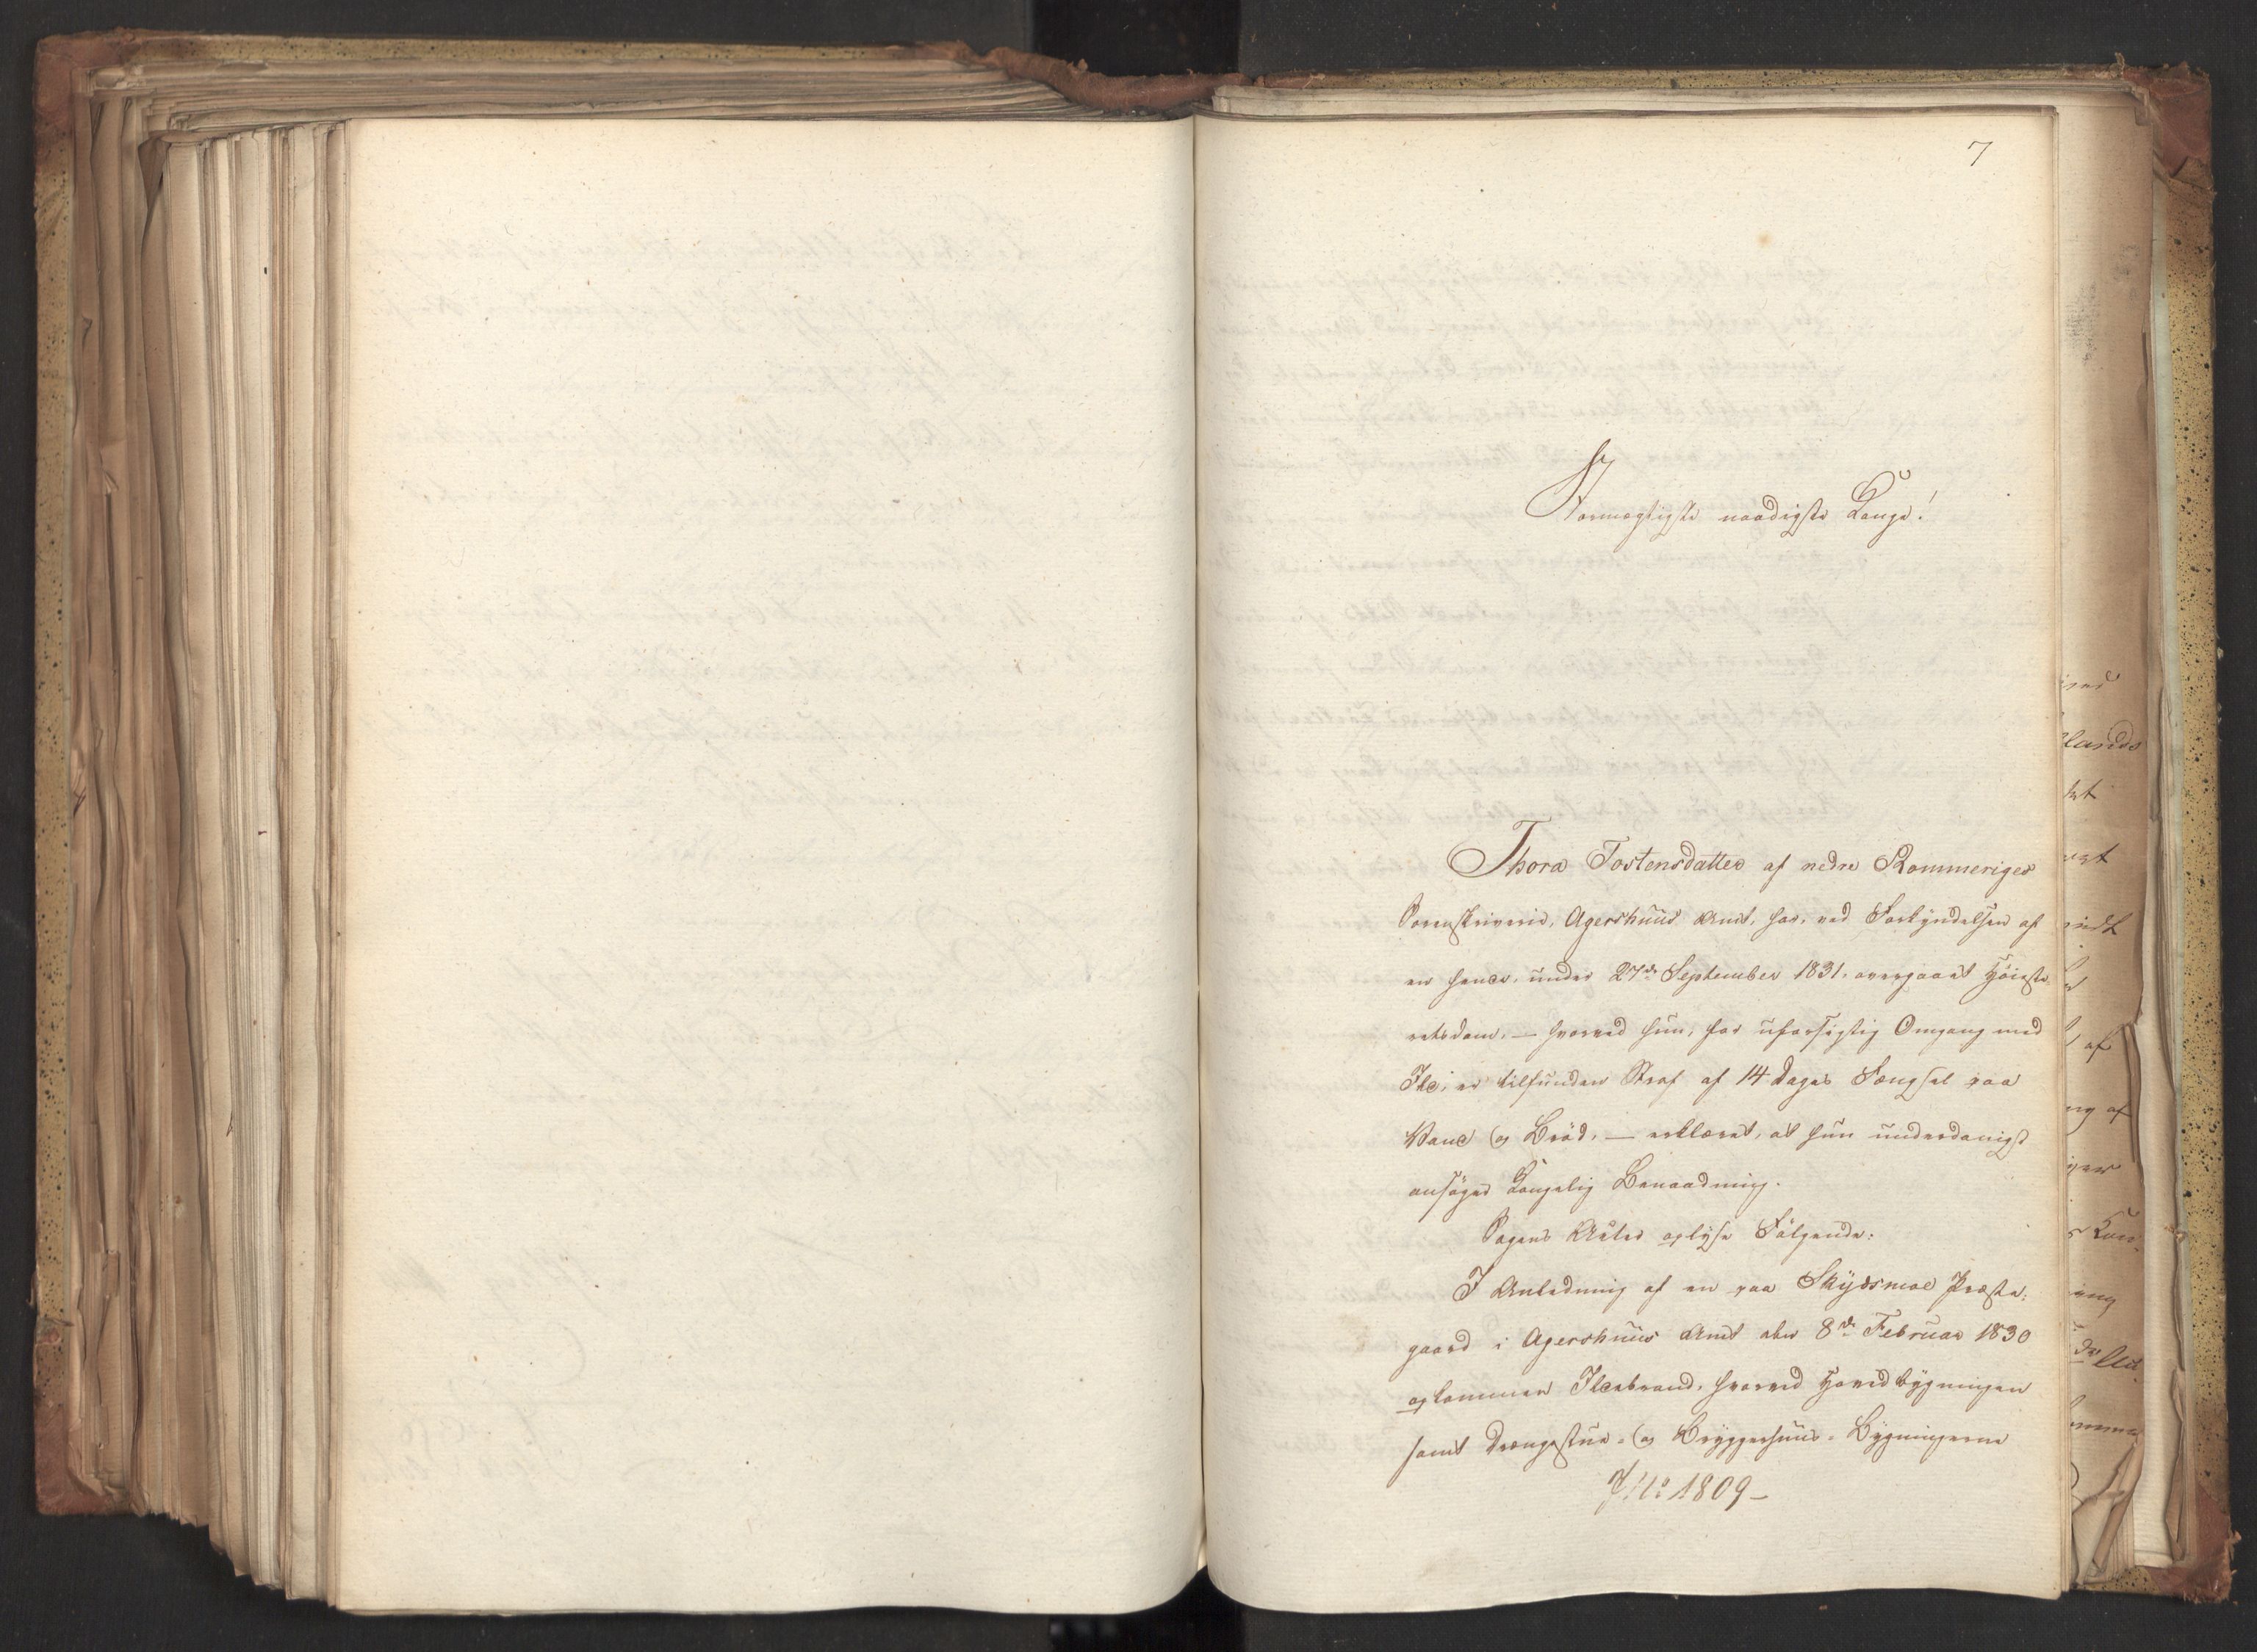 7
Stormægtigste naadigste Konge!
Thora Tostensdatter af nedre Rommeriges
Sorenskriverie, Agershuus Amt, har, ved Forkyndelsen af
en hende, under 27de September 1831. overgaaet Höieste-
retsdom, — hvorved hun, for uforsigtig Omgang med
Ild, er tilfunden Straf af 14 Dages Fængsel paa
Vand og Bröd, — erklæret, at hun underdanigst
ansöger Kongelig Benaadning.
Sagens Akter oplyse Fölgende:
I Anledning af en paa Skydsmoe Præste-
gaard i Agershuus Amt den 8de Februar 1830
opkommen Ildebrand, hvorved Hovedbygningen
samt Drengestue- og Bryggerhuus-Bygningerne
J. No 1809-